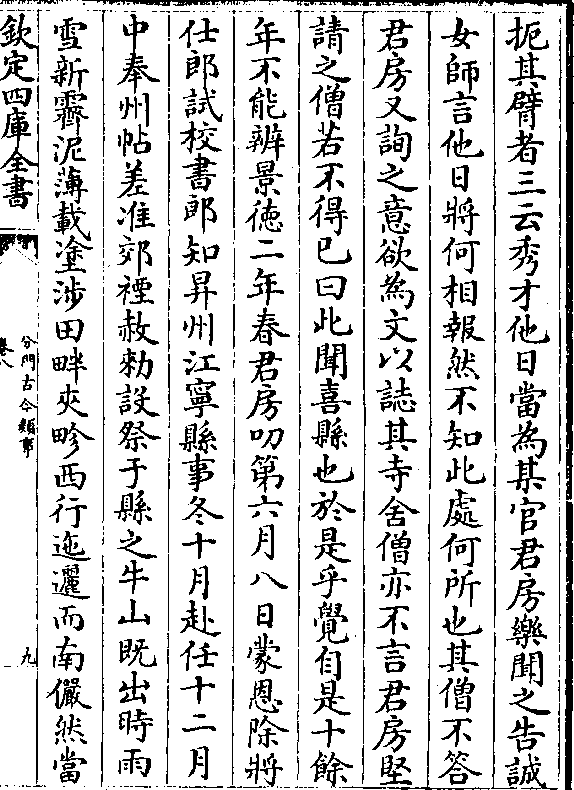 扼其臂者三云秀才他日當為某官君房樂聞之告誠
女師言他日將何相報然不知此處何所也其僧不答
君房又詢之意欲為文以誌其寺舍僧亦不言君房堅
請之僧若不得已曰此聞喜縣也於是乎覺自是十餘
年不能辨景徳二年春君房叨第六月八日蒙恩除將
仕郎試校書郎知昇州江寧縣事冬十月赴任十二月
中奉州帖差准郊禋赦勑設祭于縣之牛山既出時雨
雪新霽泥薄載塗涉田畔夾畛西行迤邐而南儼然當
欽定四庫全書
卷八
分門古今類事
九